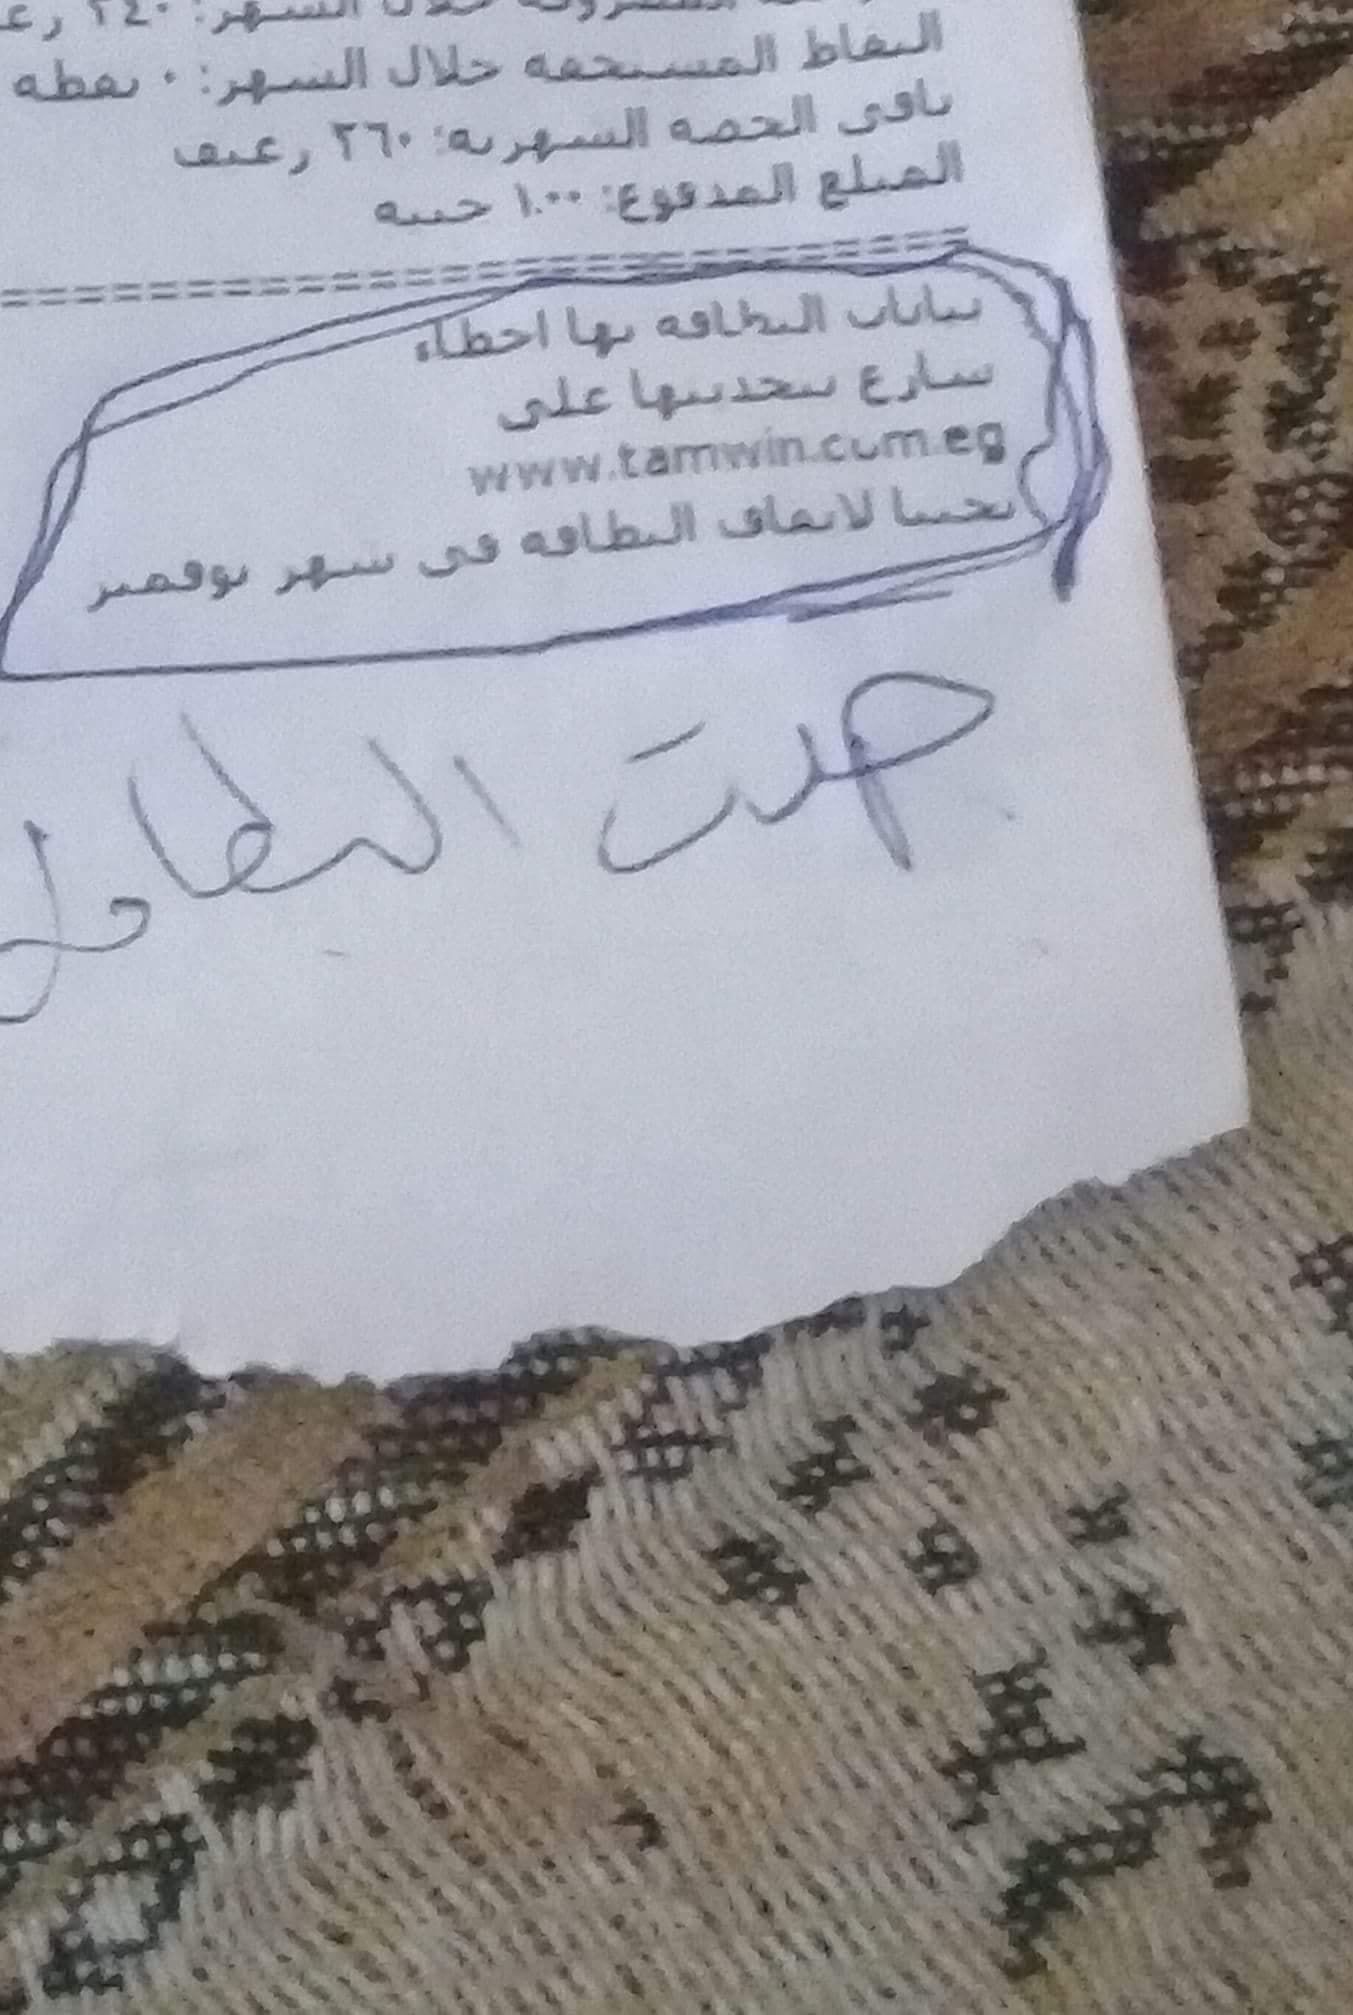 خلال الشهر: ٢٤٠
النقاط المستحقه خلال الشهر: ٠ نقطه
باقى الحصه الشهريه: ٢٦٠ رغيف
المبلغ المدفوع: ١.٠٠ جنيه
بيانات البطاقه بها اخطاء
سارع بتحديثها على
www.tamwin.com.eg
تجنبا لايقاف البطاقه فى شهر نوفمبر
البطاقه